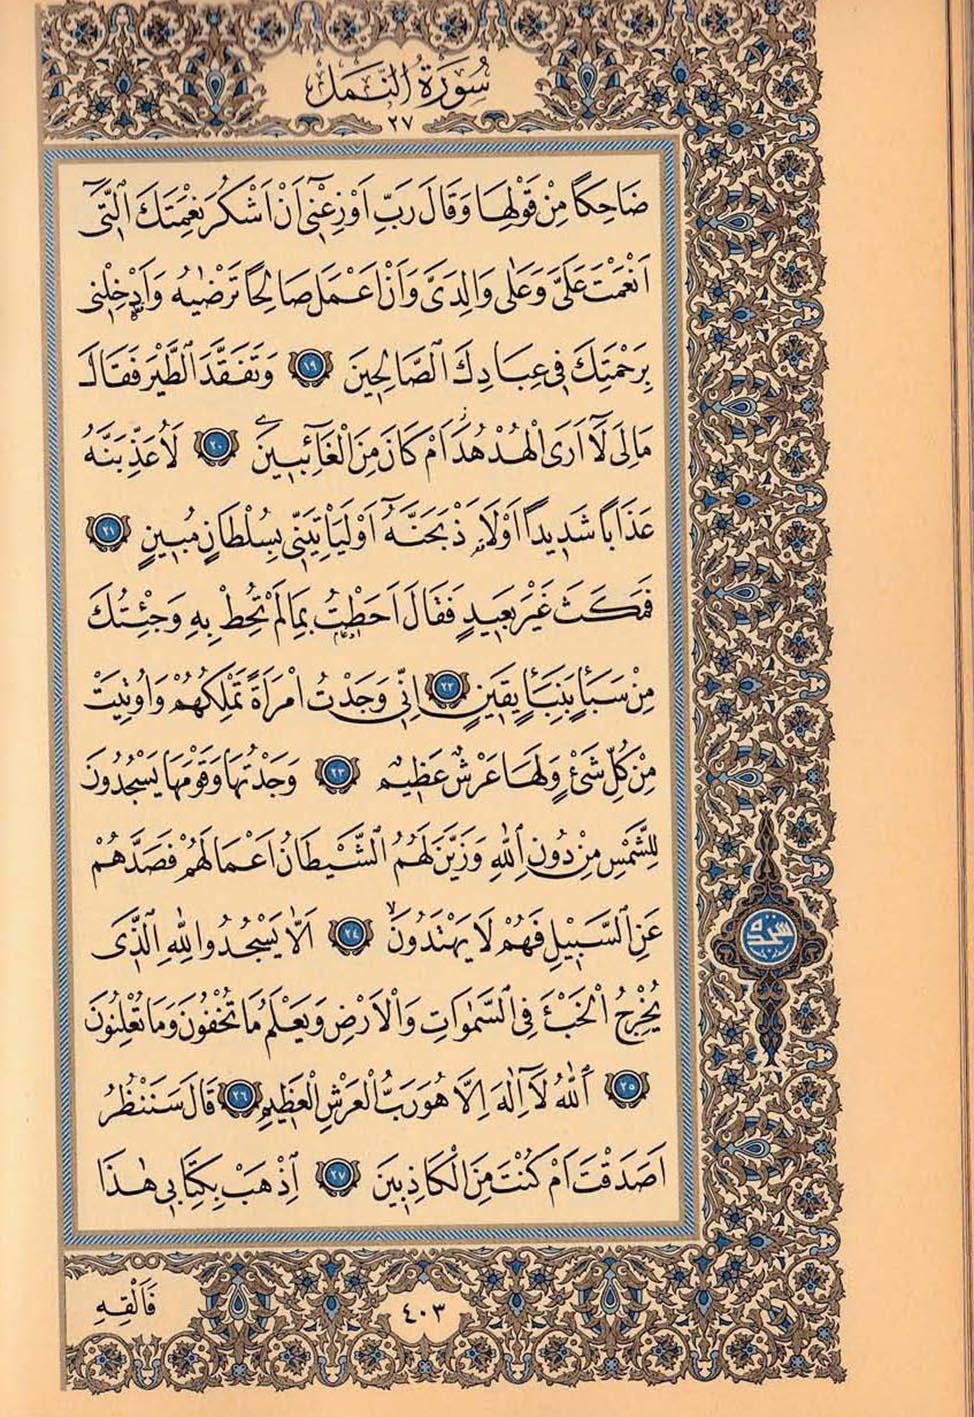 سُورَةُ النَّمْلِ
٢٧
ضَاحِكًا مِنْ قَوْلِهَا وَقَالَ رَبِّ اَوْزِعْنٖٓي اَنْ اَشْكُرَ نِعْمَتَكَ الَّتٖٓي
اَنْعَمْتَ عَلَيَّ وَعَلٰى وَالِدَيَّ وَاَنْ اَعْمَلَ صَالِحًا تَرْضٰيهُ وَاَدْخِلْنٖي
بِرَحْمَتِكَ فٖي عِبَادِكَ الصَّالِحٖينَ ١٩ وَتَفَقَّدَ الطَّيْرَ فَقَالَ
مَا لِيَ لَٓا اَرَى الْهُدْهُدَۘ اَمْ كَانَ مِنَ الْغَٓائِبٖينَ ٢٠ لَاُعَذِّبَنَّهُ
عَذَابًا شَدٖيدًا اَوْ لَاَ۬ذْبَحَنَّهُٓ اَوْ لَيَأْتِيَنّٖي بِسُلْطَانٍ مُبٖينٍ ٢١
فَمَكَثَ غَيْرَ بَعٖيدٍ فَقَالَ اَحَطْتُ بِمَا لَمْ تُحِطْ بِهٖ وَجِئْتُكَ
مِنْ سَبَأٍ بِنَبَأٍ يَقٖينٍ ٢٢ اِنّٖي وَجَدْتُ امْرَاَةً تَمْلِكُهُمْ وَاُو۫تِيَتْ
مِنْ كُلِّ شَيْءٍ وَلَهَا عَرْشٌ عَظٖيمٌ ٢٣ وَجَدْتُهَا وَقَوْمَهَا يَسْجُدُونَ
لِلشَّمْسِ مِنْ دُونِ اللّٰهِ وَزَيَّنَ لَهُمُ الشَّيْطَانُ اَعْمَالَهُمْ فَصَدَّهُمْ
عَنِ السَّبٖيلِ فَهُمْ لَا يَهْتَدُونَۙ ٢٤ اَلَّا يَسْجُدُوا لِلّٰهِ الَّذٖي
يُخْرِجُ الْخَبْءَ فِي السَّمٰوَاتِ وَالْاَرْضِ وَيَعْلَمُ مَا تُخْفُونَ وَمَا تُعْلِنُونَ
٢٥ اَللّٰهُ لَٓا اِلٰهَ اِلَّا هُوَ رَبُّ الْعَرْشِ الْعَظٖيمِ ٢٦ قَالَ سَنَنْظُرُ
اَصَدَقْتَ اَمْ كُنْتَ مِنَ الْكَاذِبٖينَ ٢٧ اِذْهَبْ بِكِتَابٖي هٰذَا
سجده
فَاَلْقِهِ
٤٠٣